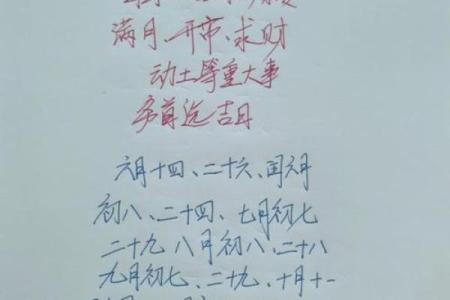 满月、开市、求财
动土等重大事
首选吉日
六月十四、二十六、闰六月
初八、二十四、七月初七
二十九 八月初八、二十八
九月初七、二十九、十月十一